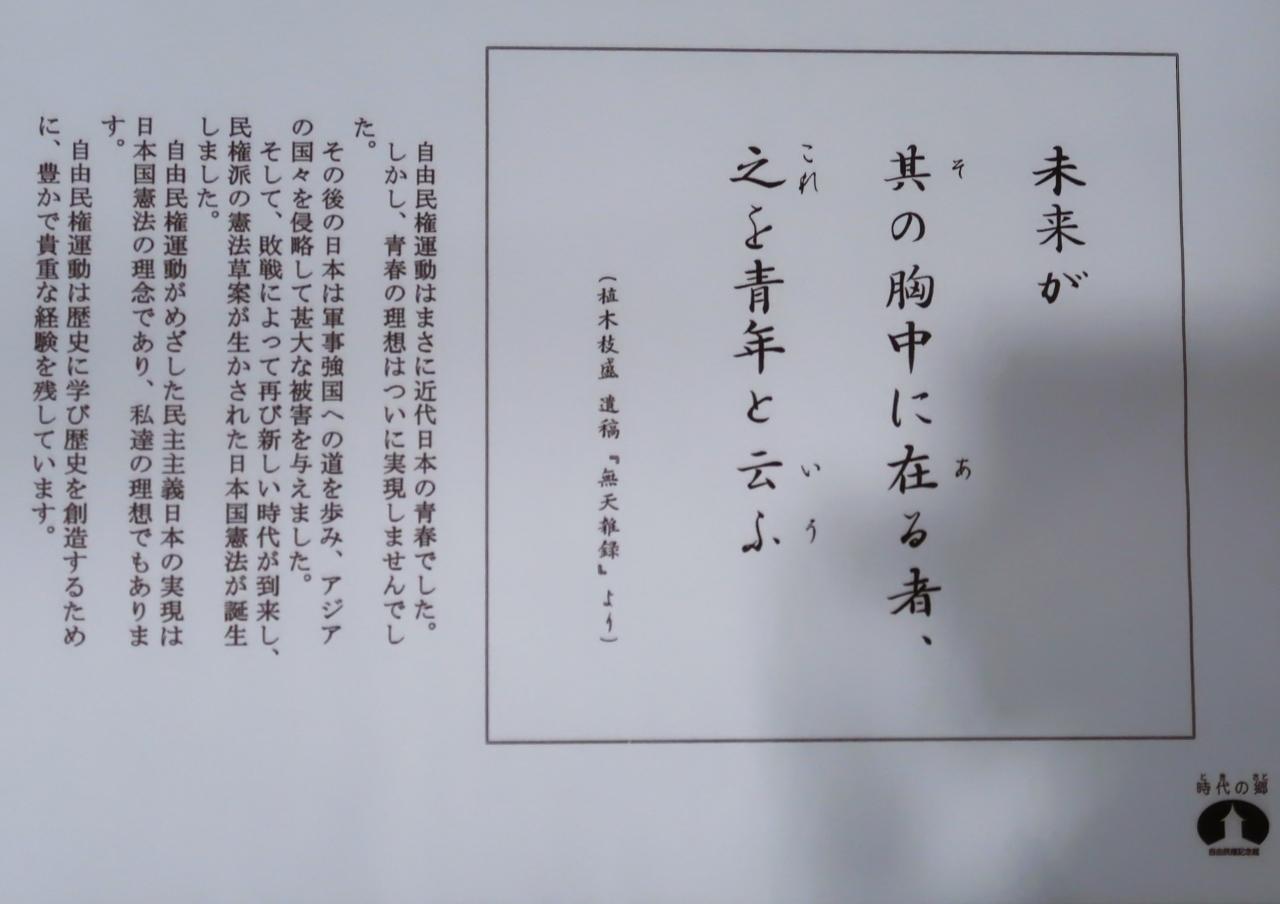 未来が
其の胸中に在る者、
之を青年と云ふ
そ
あ
これ
いう
（植木枝盛 遺稿『無天雑録』より）
自由民権運動はまさに近代日本の青春でした。
しかし、青春の理想はついに実現しませんでし
た。
その後の日本は軍事強国への道を歩み、アジア
の国々を侵略して甚大な被害を与えました。
そして、敗戦によって再び新しい時代が到来し、
民権派の憲法草案が生かされた日本国憲法が誕生
しました。
自由民権運動がめざした民主主義日本の実現は
日本国憲法の理念であり、私達の理想でもありま
す。
自由民権運動は歴史に学び歴史を創造するため
に、豊かで貴重な経験を残しています。
とき さと
時代の郷
自由民権記念館